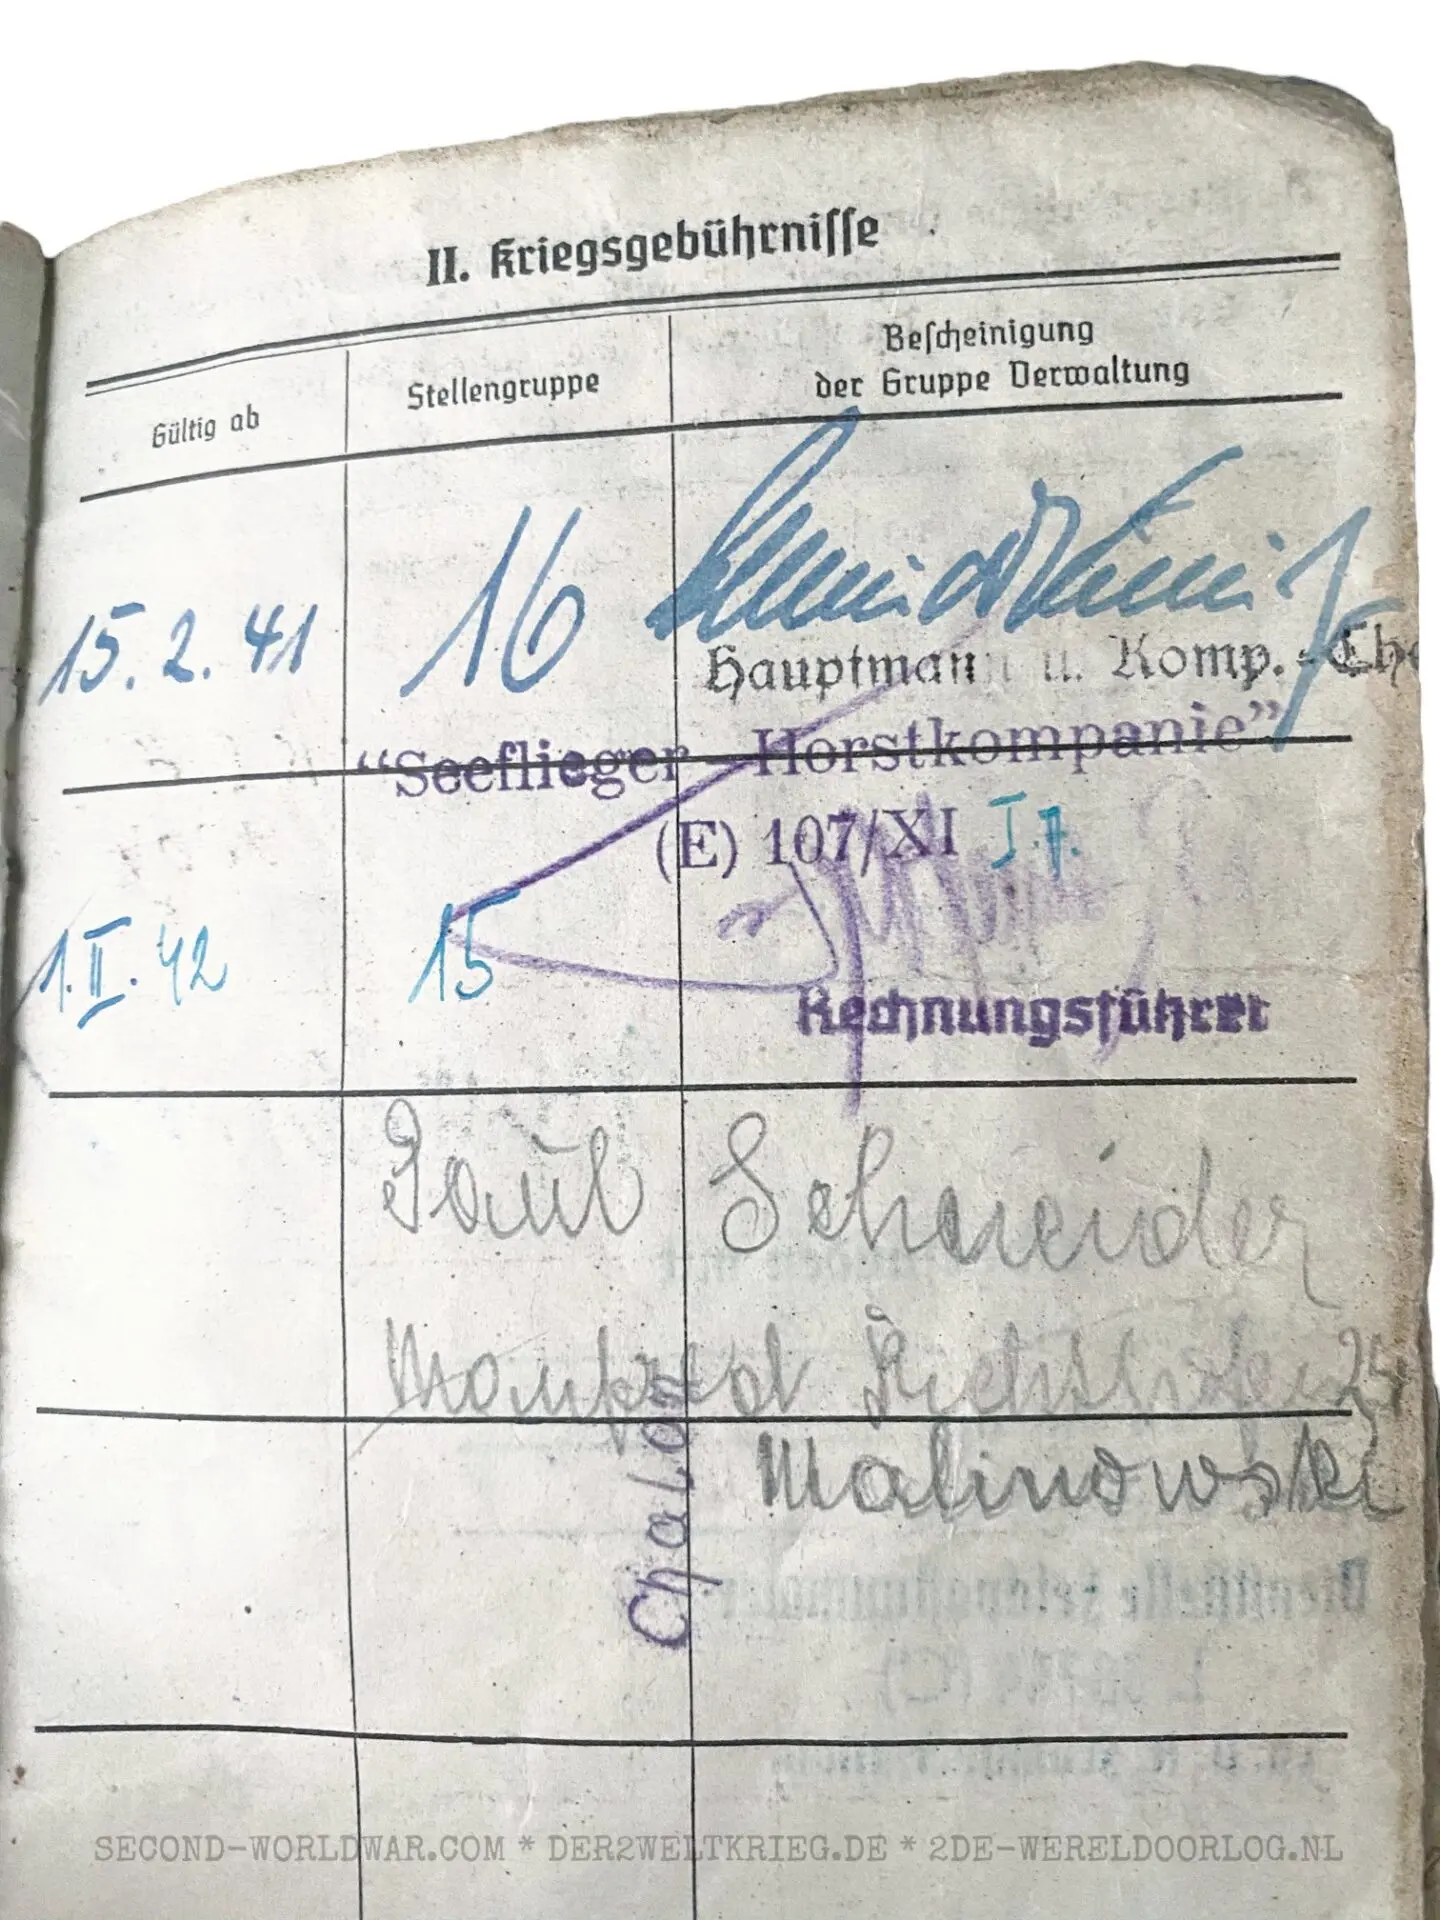 II. Kriegsgebührnisse
Gültig ab
Stellengruppe
Bescheinigung
der Gruppe Verwaltung
15.2.41
16
Hauptmann u. Komp.-Che
“Seeflieger - Horstkompanie”
(E) 107/XI
1.II.42
15
Rechnungsführer
Paul Schneider
Manfred
Malinowski
Chalon
SECOND-WORLDWAR.COM * DER2WELTKRIEG.DE * 2DE-WERELDOORLOG.NL